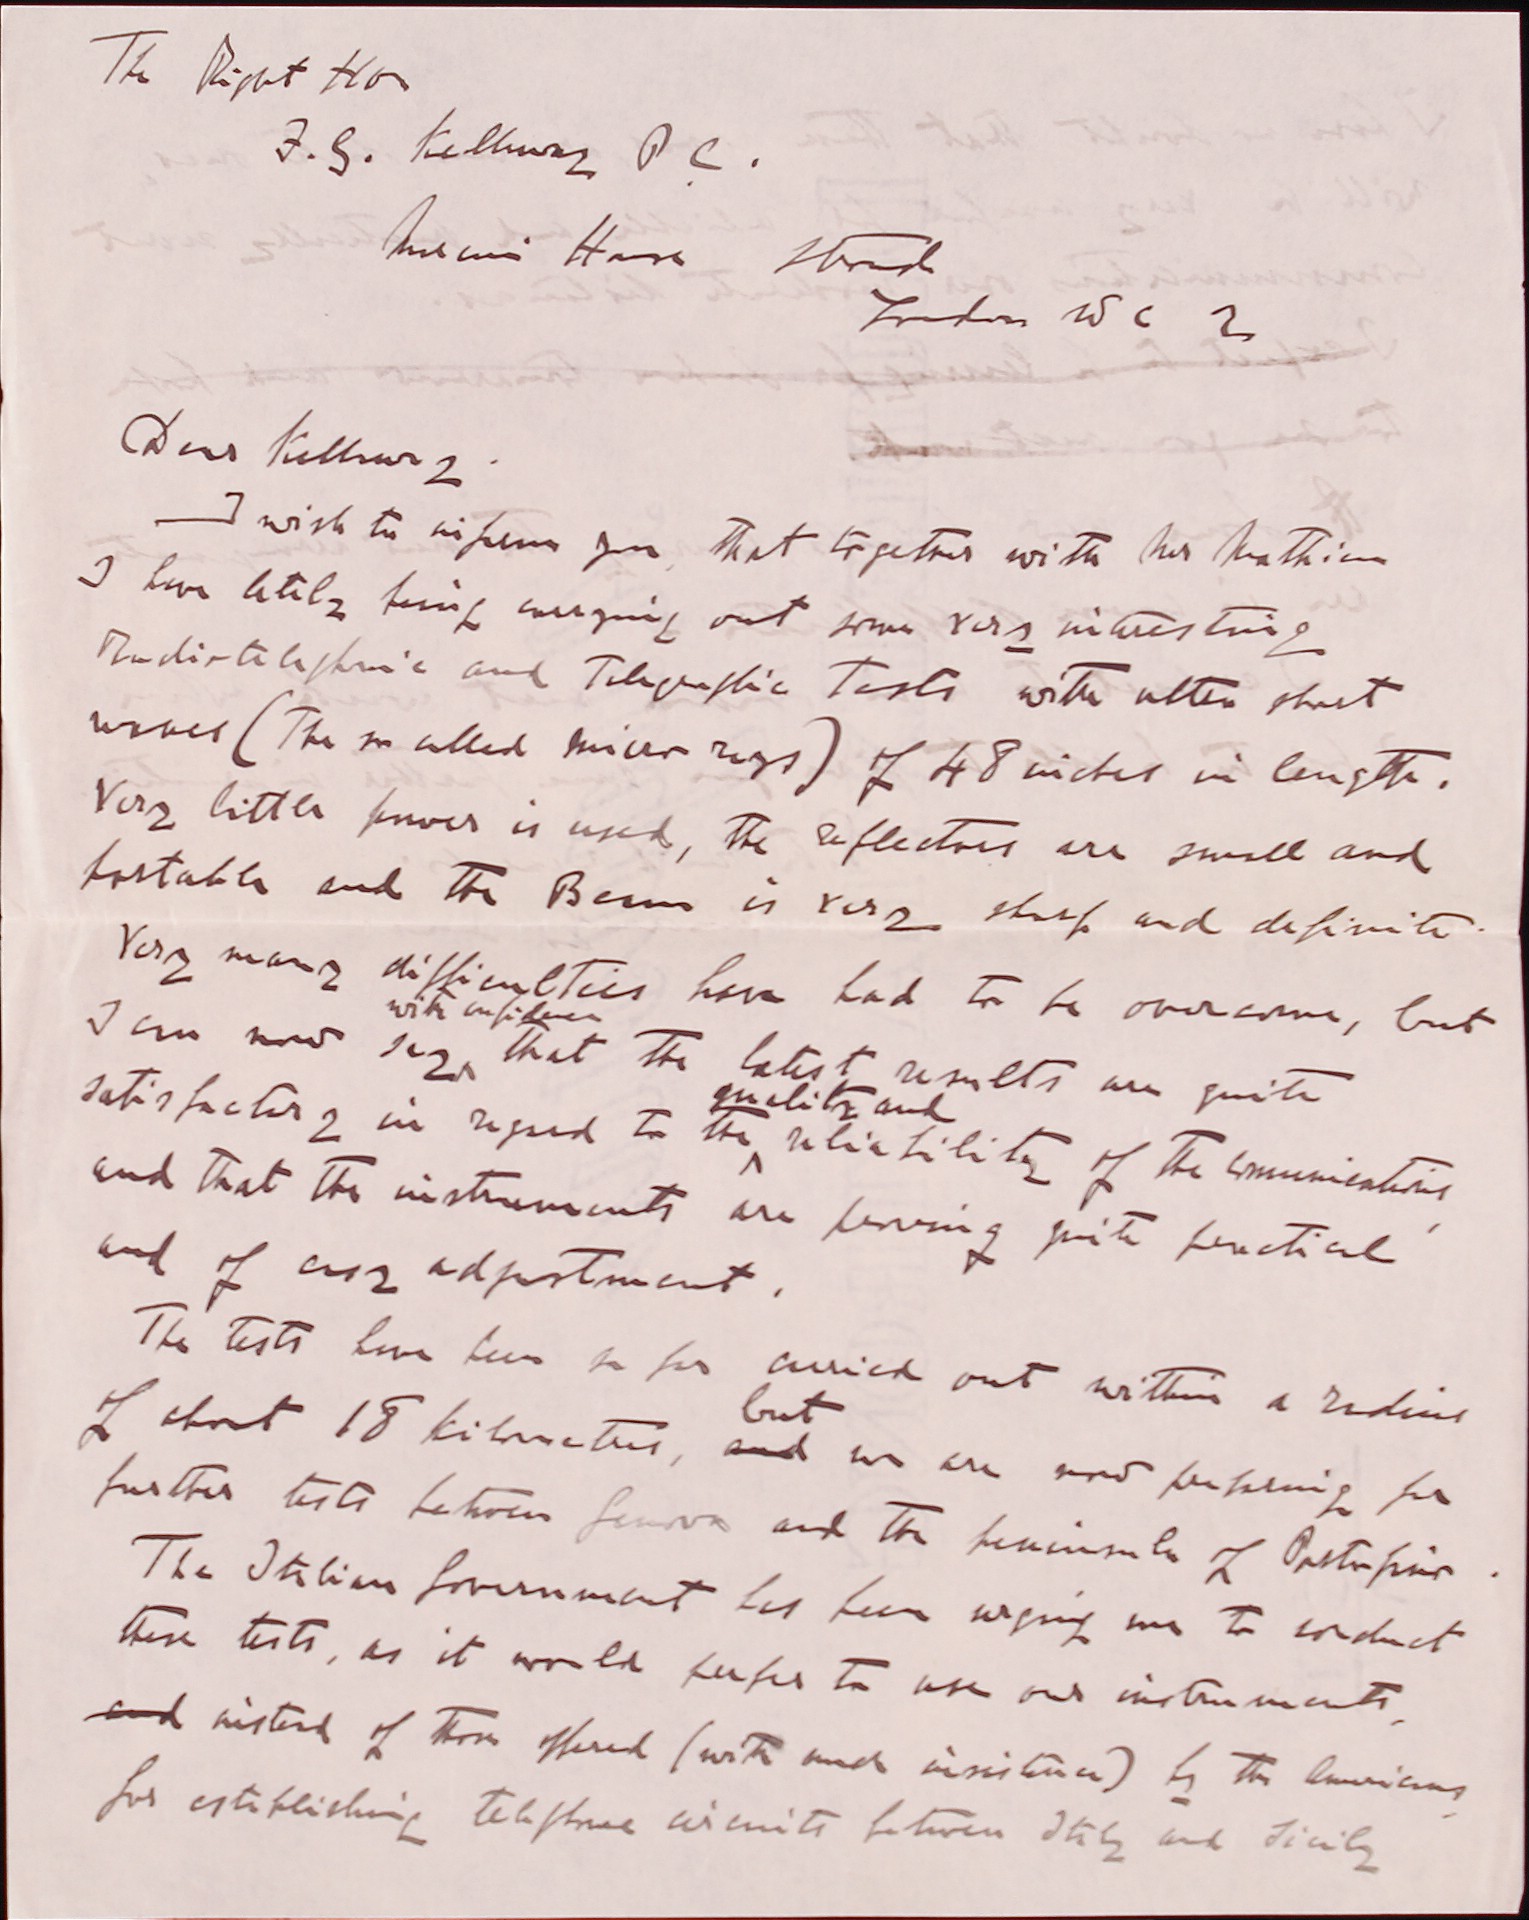 The Right Hon
F. G. Kellaway P.C.
Marconi House Strand
London W C 2
Dear Kellaway.
I wish to inform you, that together with Mr Mathieu
I have lately being carrying out some very interesting
Radiotelephonic and Telegraphic Tests with ultra short
waves (The so called micro rays) of 48 inches in length.
Very little power is used, the reflectors are small and
portable and the Beam is very sharp and definite.
Very many difficulties have had to be overcome, but
with confidence
I can now say, that the latest results are quite
quality and
satisfactory in regard to the reliability of the communications,
and that the instruments are proving quite practical
and of easy adjustment.
The tests have been so far carried out within a radius
but
of about 18 kilometres, and we are now preparing for
further tests between Genova and the peninsula of Portofino.
The Italian Government has been urging me to conduct
these tests, as it would prefer to use our instruments,
and instead of those offered (with much insistence) by the Americans,
for establishing telephone circuits between Italy and Sicily